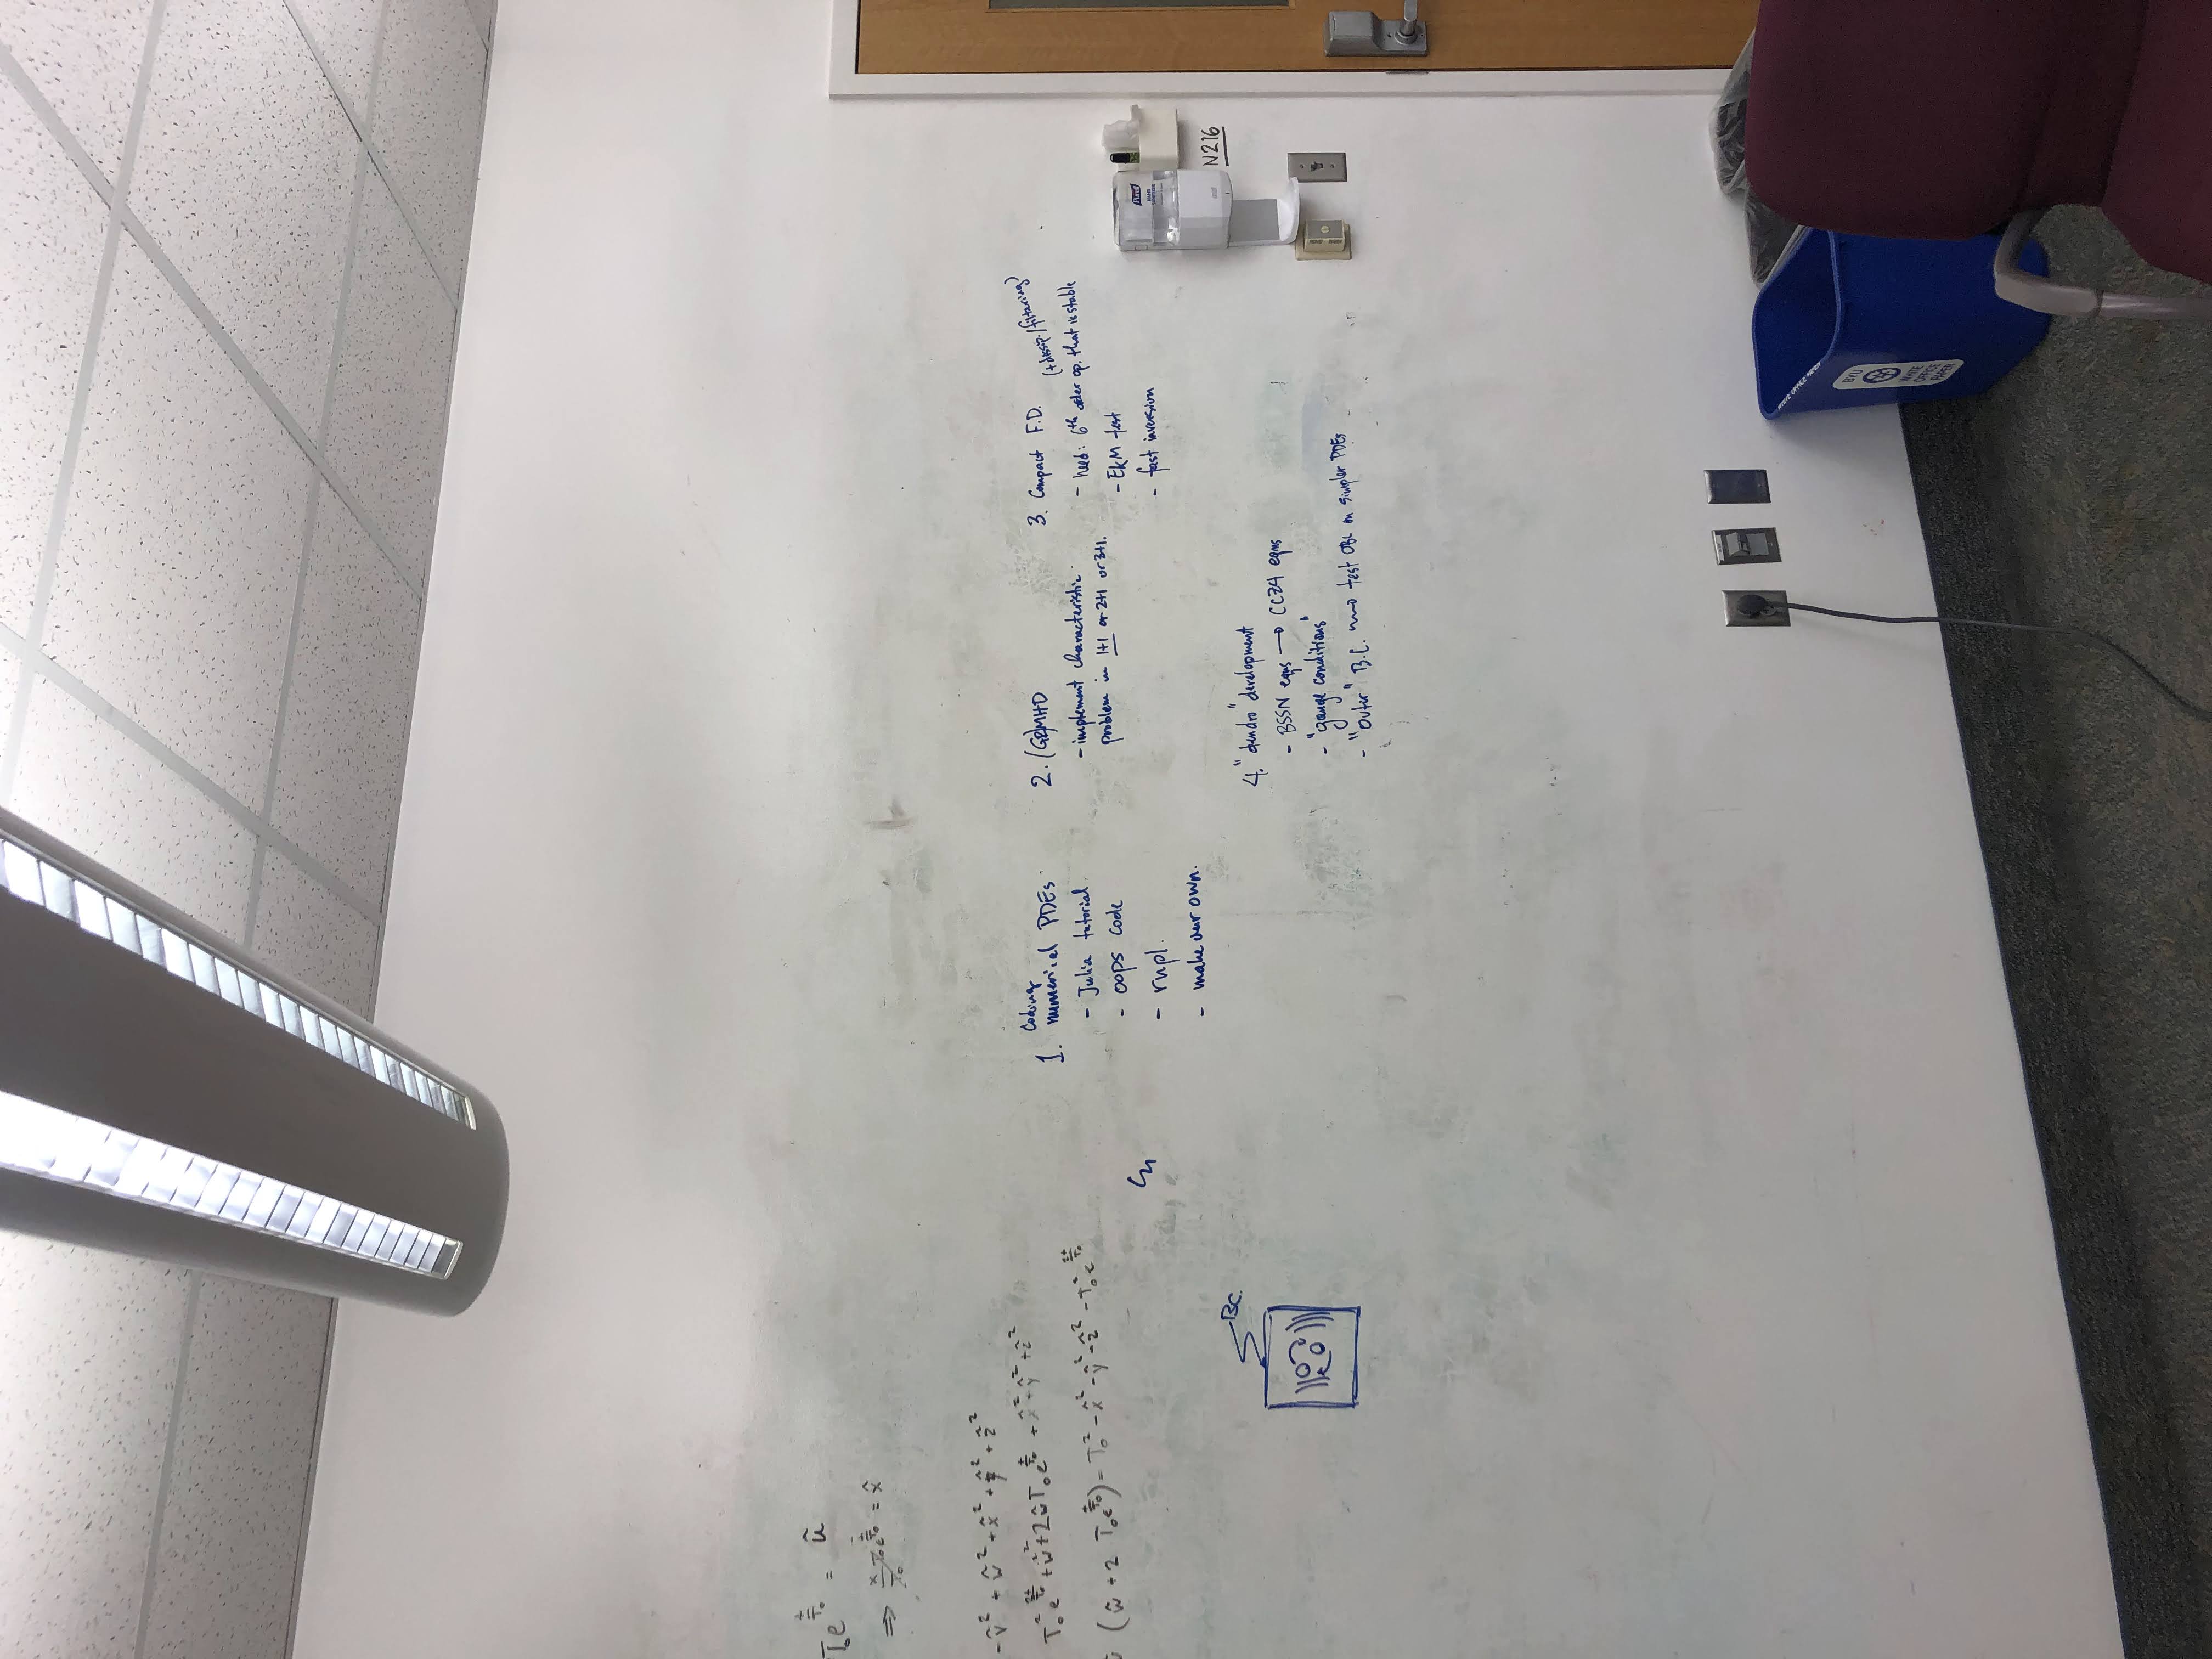 T₀e^(t/T₀) = û
⇒ x/T₀ T₀e^(t/T₀) = x̂
-v̂² + ŵ² + x̂² + ŷ² + ẑ²
T₀² e^(2t/T₀) + ŵ² + 2ŵT₀e^(t/T₀) + x̂² + ŷ² + ẑ²
(ŵ + 2 T₀e^(t/T₀)) = T₀² - x̂² - ŷ² - ẑ² - T₀² e^(2t/T₀)
B.C.
1. Coding
numerical PDEs
- Julia tutorial.
- oops code
- rnpl.
- make our own.
2. (GR)MHD
- implement characteristic
problem in 1+1 or 2+1 or 3+1.
3. Compact F.D. (+dissip./filtering)
- need: 6th order op. that is stable
- EkM test
- fast inversion
4. "dendro" development
- BSSN eqns → CCZ4 eqns
- "gauge conditions"
- "Outer" B.C. → test OBC on simpler PDEs
Purell
HAND
SANITIZER
N216
WHITE OFFICE PAPER
BYU
WHITE
OFFICE
PAPER